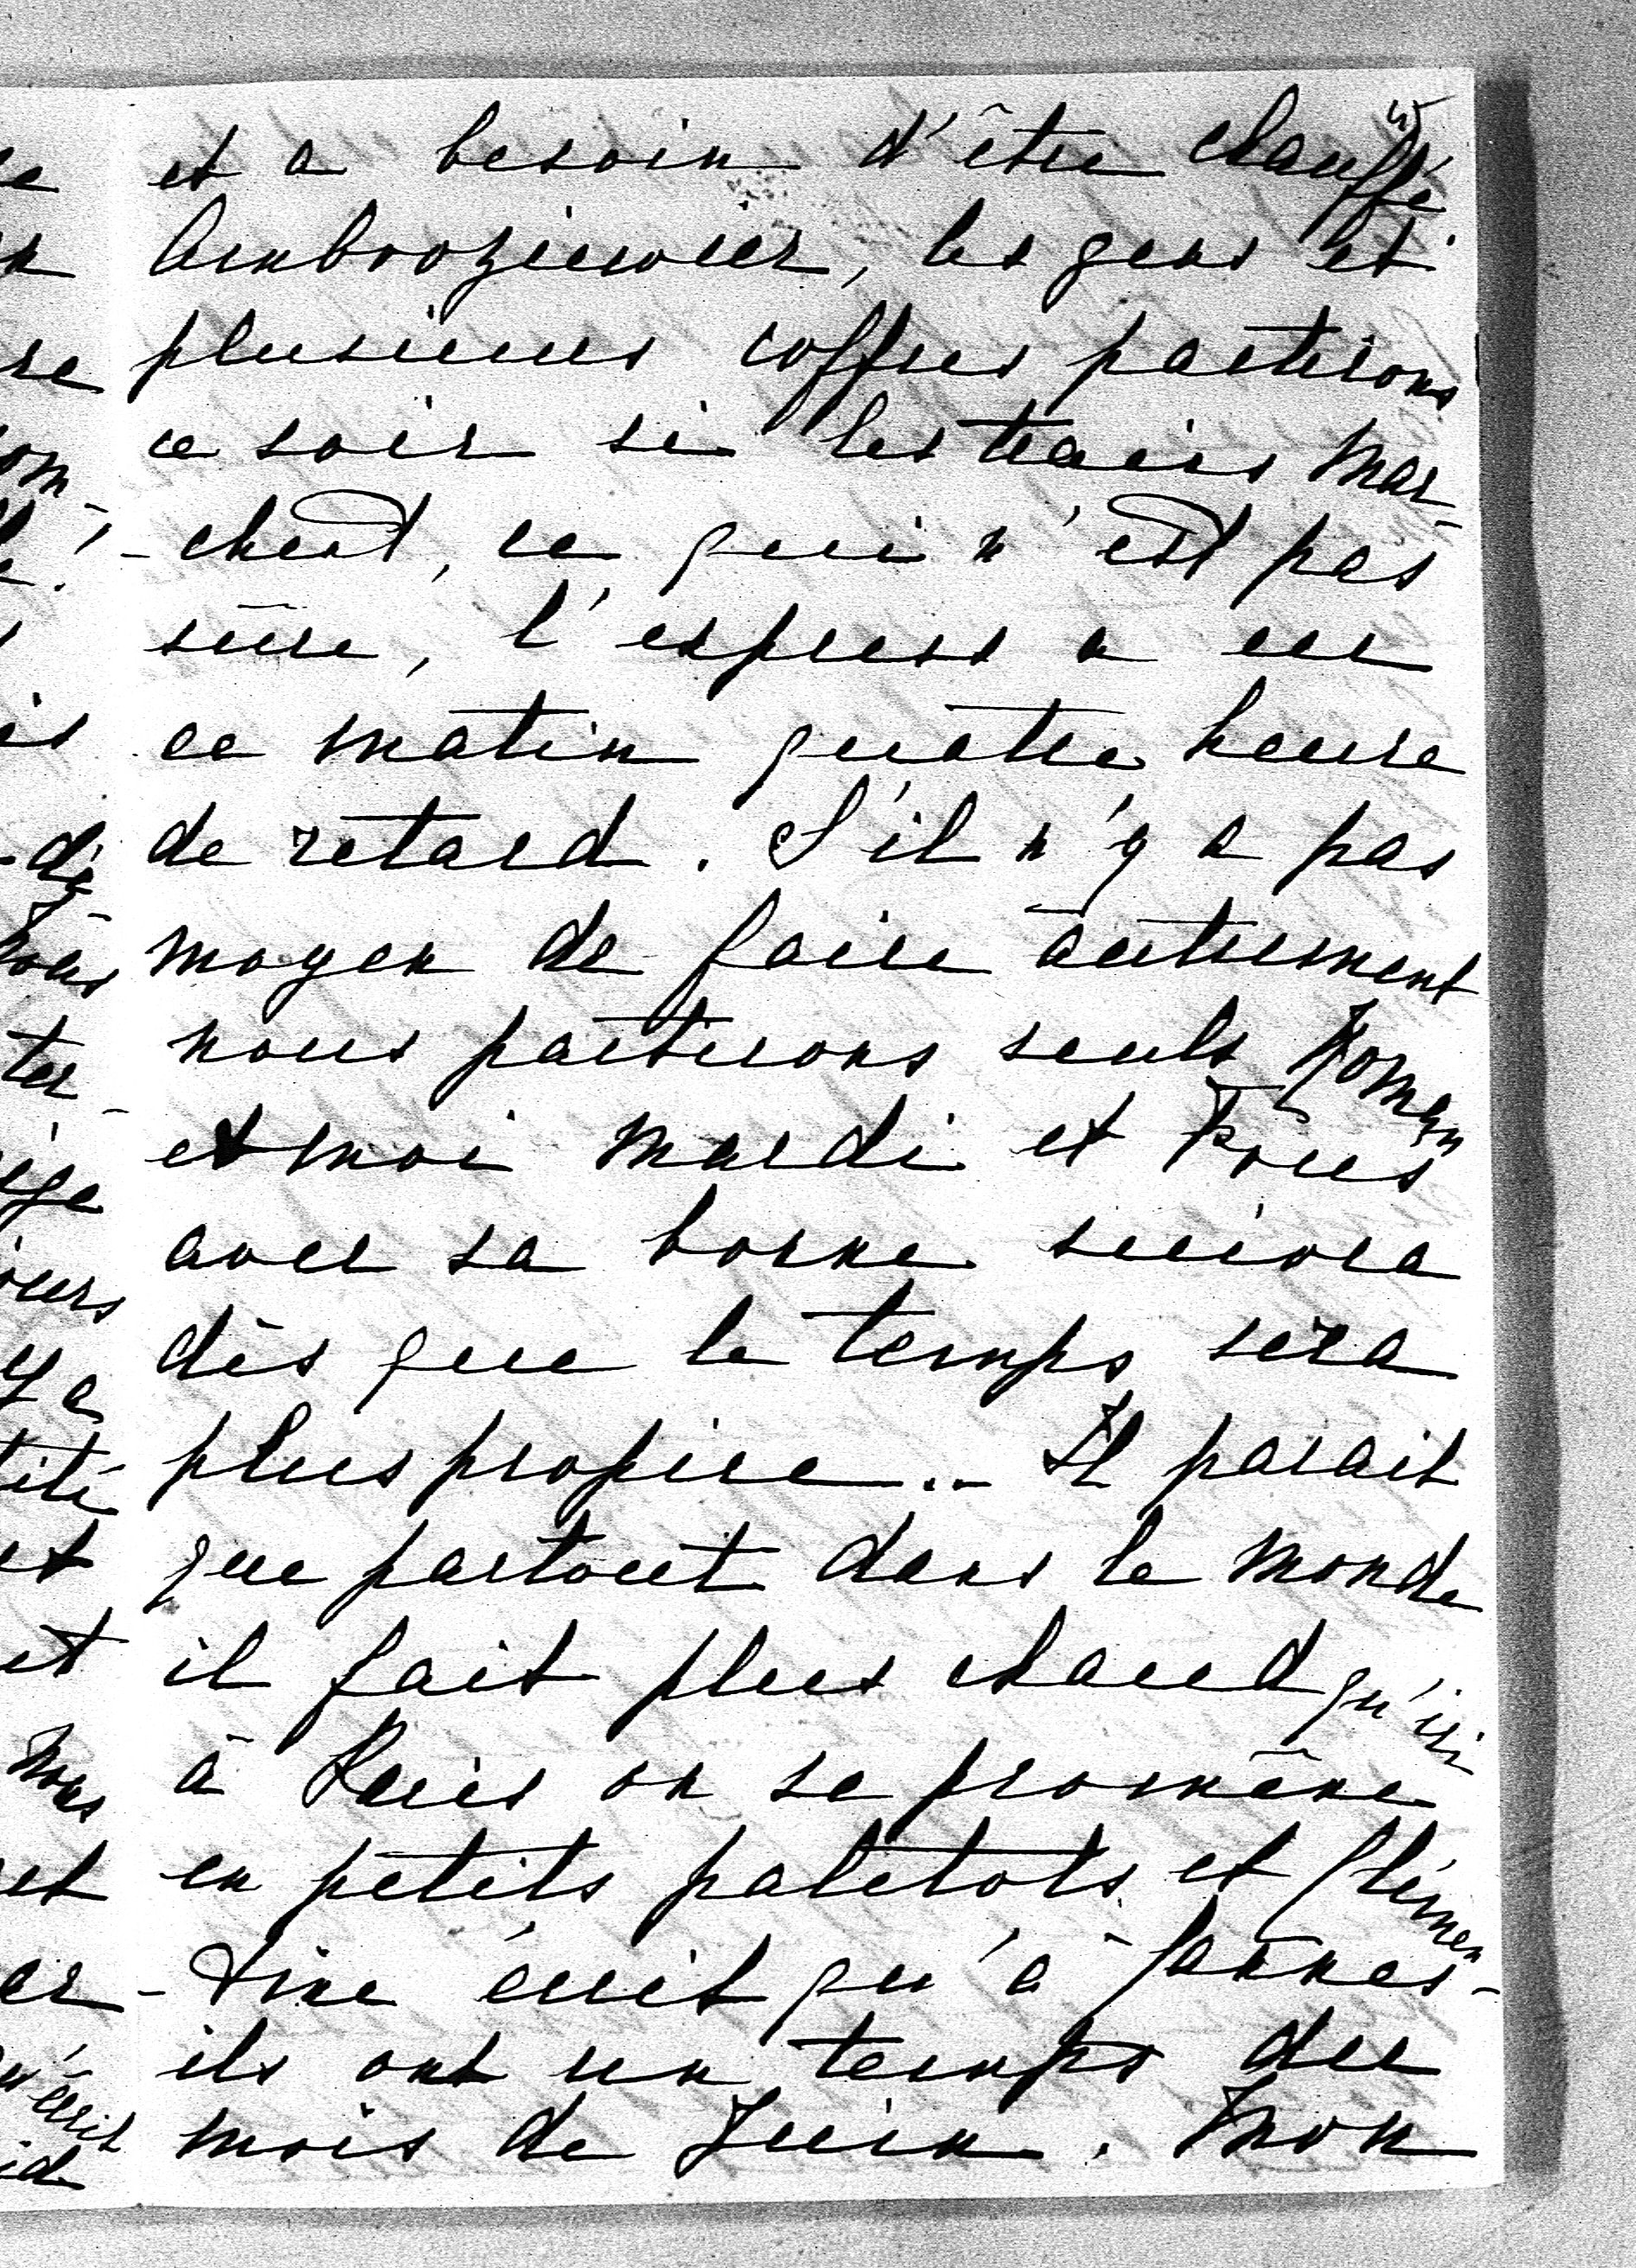 et a besoin d'être chauffé
les gens et
plusieurs coffres partirons
ce soir si les trains mar-
-chent, ce qui n'est pas
sûre, l'express a eu
ce matin quatre heure
de retard. S'il n'y a pas
moyen de faire autrement
nous partirons seuls Roman
et moi mardi et
avec sa bonne suivra
dès que le temps sera
plus propice.. Il parait
que partout dans le monde
il fait plus chaud qu'ici
à Paris on se promène
en petits paletots et Clémen
-tine écrit qu'à Cannes-
ils ont un temps du
mois de Juin. Mon